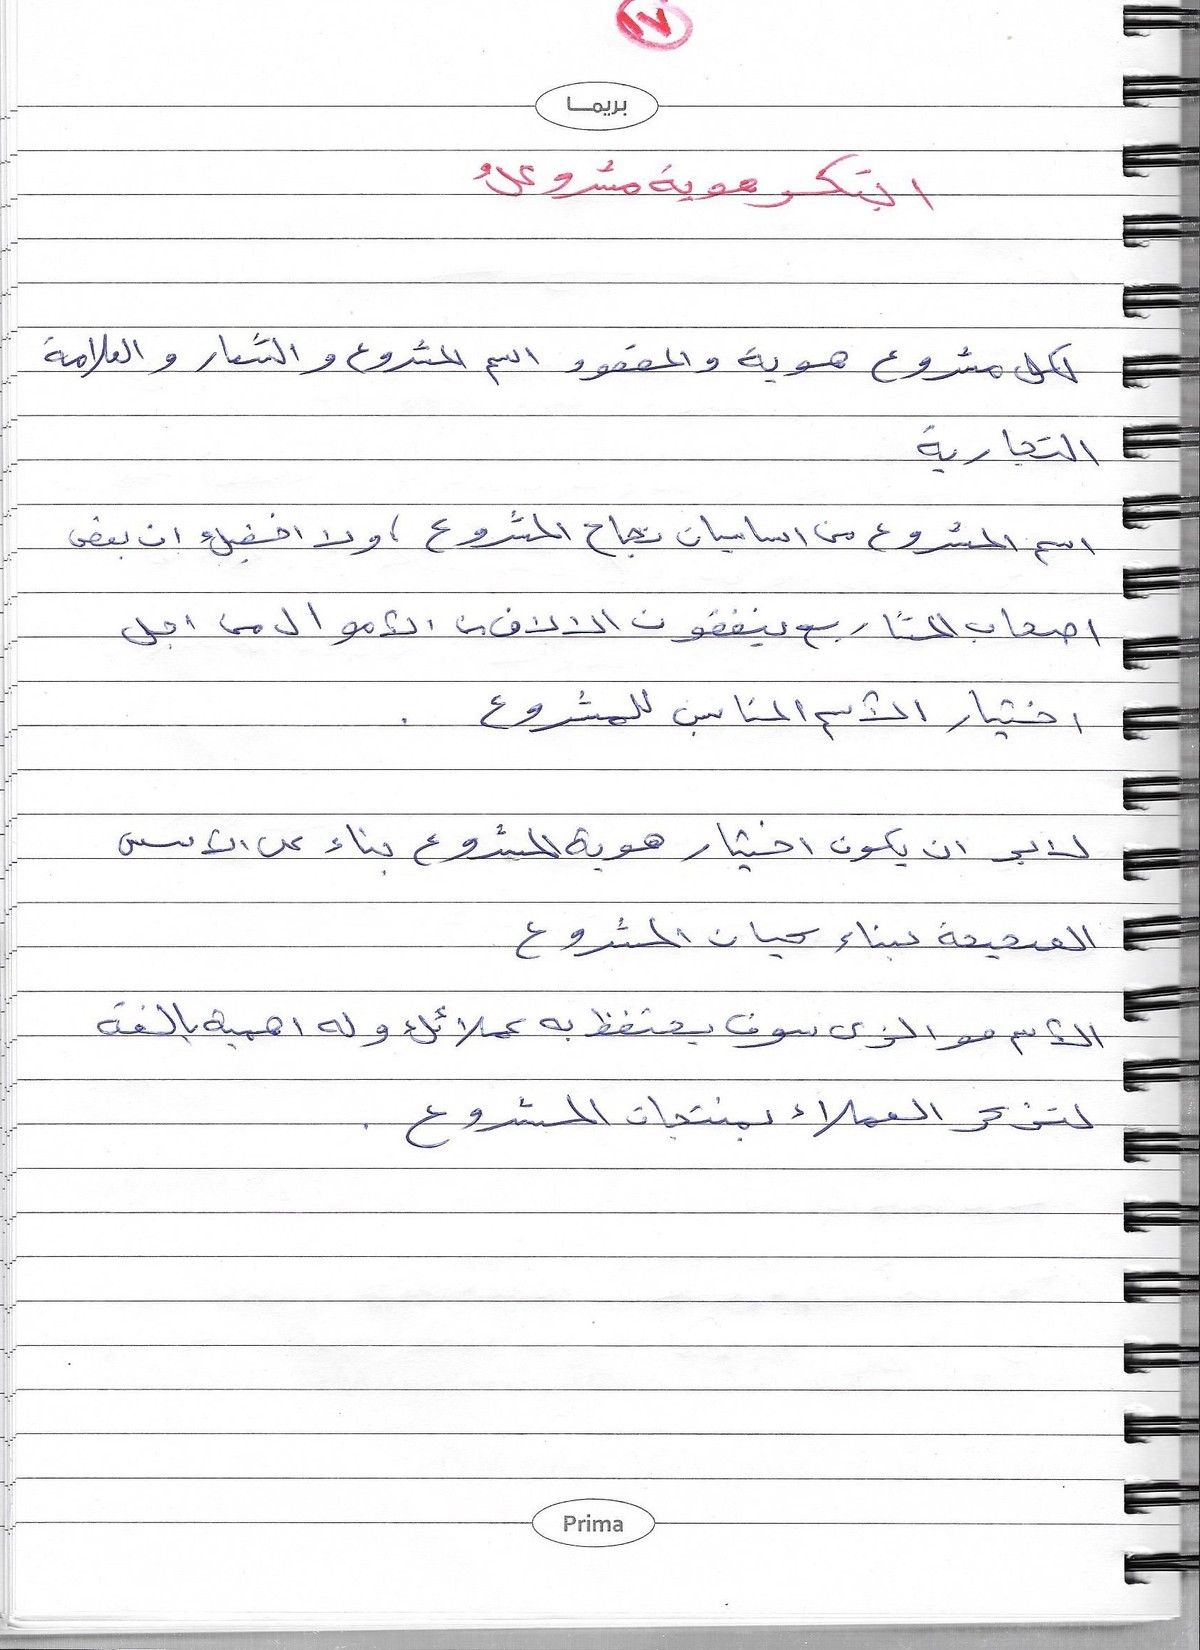 ١٧
بريما
ابتكر هوية مشروعك
لكل مشروع هوية والمقصود اسم المشروع و الشعار و العلامة
التجارية
اسم المشروع من اساسيات نجاح المشروع ، ولا اخفيك ان بعض
اصحاب المشاريع ينفقون الالاف من الأموال من اجل
اختيار الأسم المناسب للمشروع .
لابد ان يكون اختيار هوية المشروع بناء على الأسس
الصحيحة لبناء كيان المشروع
الأسم هو الذى سوف يحتفظ به عملائك و له اهمية بالغة
لتذكر العملاء بمنتجات المشروع .
Prima